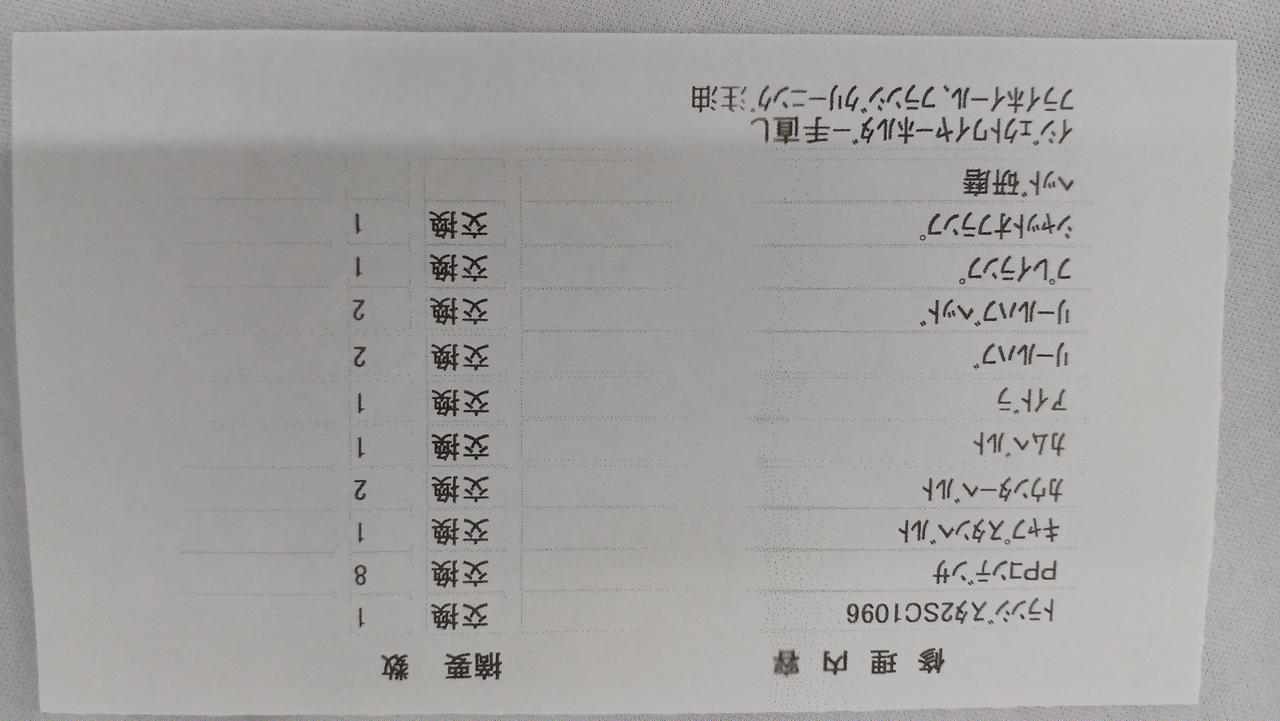 修理内容 摘要 数
トランジスタ2SC1096 交換 1
PPコンデンサ 交換 8
キャプスタンベルト 交換 1
カウンターベルト 交換 2
カムベルト 交換 1
アイドラ 交換 1
リールハブ 交換 2
リールハブベッド 交換 2
プレイランプ 交換 1
シャットオフランプ 交換 1
ヘッド研磨
イジェクトワイヤーホルダー手直し
フライホイール、フランジクリーニング注油